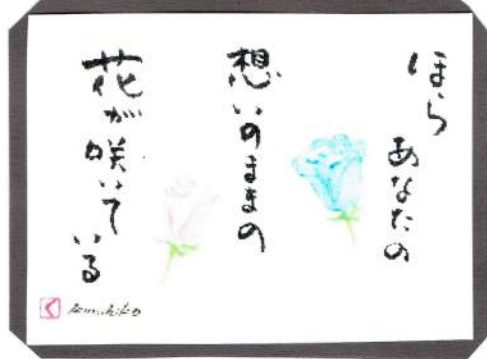 ほら
あなたの
想いのままの
花が咲いて
いる
く